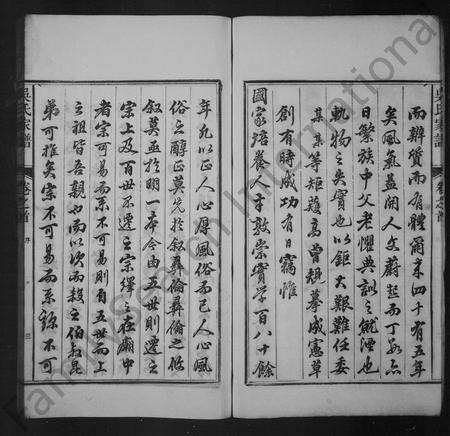 吳氏家譜
卷之首
而辦質而有體爾來四十有五年
矣風氣益開人文蔚起而丁口亦
日繁族中父老懼典訓之就湮也
軌物之失實也以鉅大艱難任委
某某等矩矱高曾規摹成憲草
創有時成功有日竊惟
國家培養人才敦崇實學百八十餘
年凡以正人心厚風俗而已人心風
俗之醇正莫先於敘彝倫彝倫之攸
敘莫亟於明一本今由五世則遷之
宗上及百世不遷之宗繹在廟中
者宗可易而系不可易則自五世而上
之祖皆吾親也而以次而殺之伯叔昆
弟可推矣宗不可易而系諒不可
吳氏家譜
卷之首
Family Search International